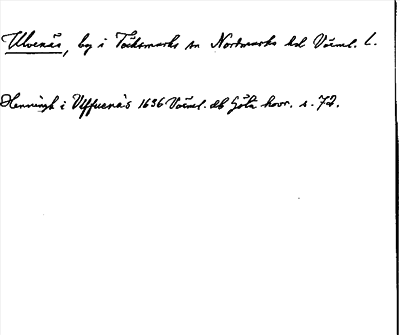 Ulvenäs, by i Töcksmarks sn Nordmarks hd Värml. L.
Henningh i Ulffuenäs 1636 Värml. db Göta hovr. s. 72.